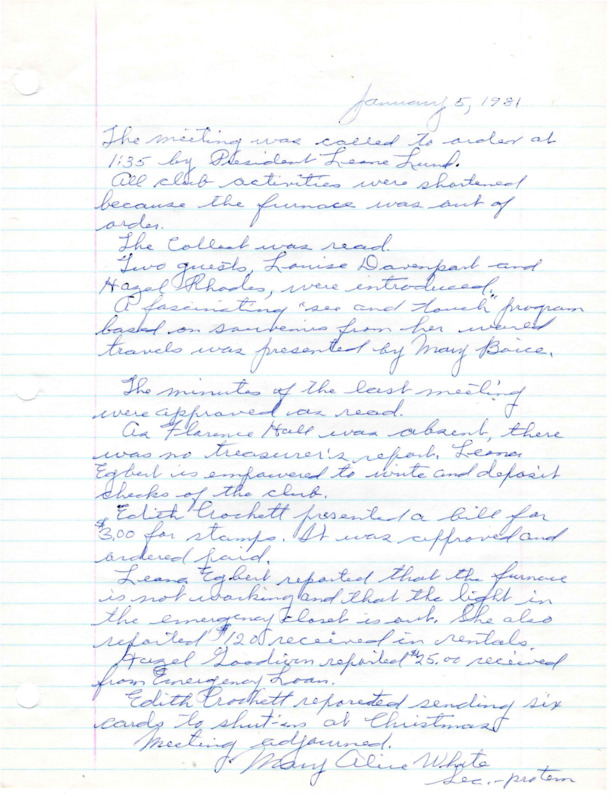 January 5, 1981
The meeting was called to order at
1:35 by President Leone Lund.
All club activities were shortened
because the furnace was out of
order.
The Collect was read.
Two guests, Louise Davenport and
Hazel Rhodes, were introduced.
A fascinating "see and touch" program
based on souvenirs from her
travels was presented by Mary Boice.
The minutes of the last meeting
were approved as read.
As Florence Hall was absent, there
was no treasurer's report. Leona
Egbert is empowered to write and deposit
checks of the club.
Edith Crockett presented a bill for
$3.00 for stamps. It was approved and
ordered paid.
Leona Egbert reported that the furnace
is not working and that the light in
the emergency closet is out. She also
reported $120 received in rentals.
Hazel reported $25.00 received
from Emergency Loan.
Edith Crockett reporeted sending six
cards to shut-ins at Christmas
Meeting adjourned.
Mary Alice White
Sec.-protem